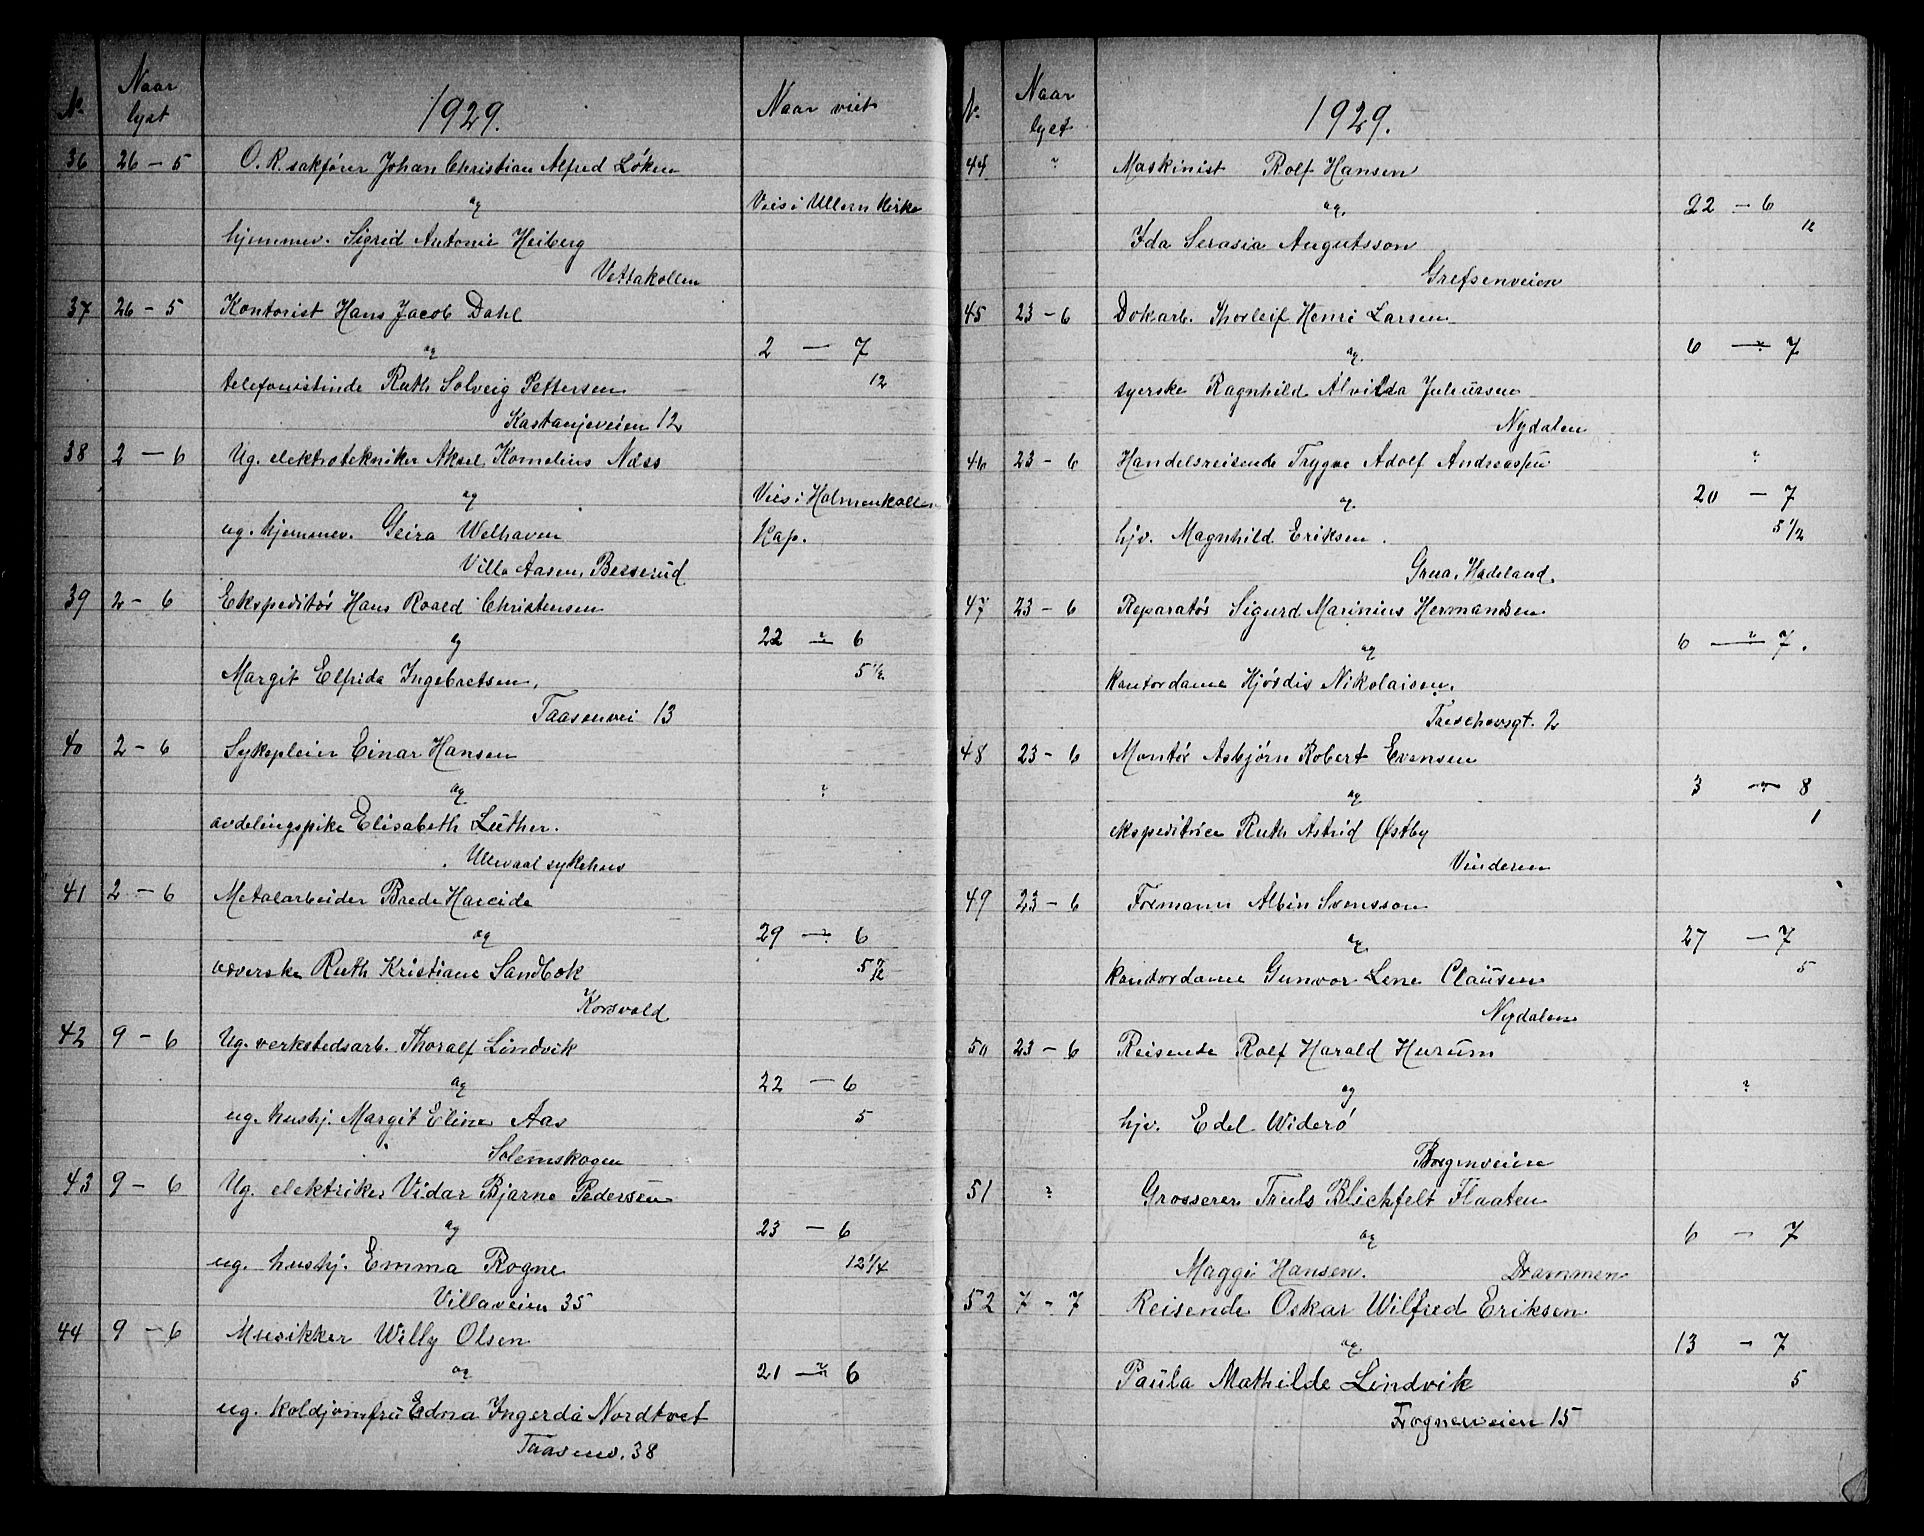 No. Naar lyst 1929. Naar viet
36 26 - 5 O. R. sakfører Johan Christian Alfred Løken
og Vies i Ullern Kirke
hjemmev. Sigrid Antonie Heiberg
Vettakollen
37 26 - 5 Kontorist Hans Jacob Dahl
og 2 - 7
telefonistinde Ruth Solveig Pettersen 12
Kastanjeveien 12
38 2 - 6 Ug. elektrotekniker Aksel Kornelius Næss
og Vies i Holmenkollen
ug. hjemmev. Geira Welhaven Kap.
Villa Aasen, Besserud
39 2 - 6 Ekspeditør Hans Roald Christensen
og 22 - 6
Margit Elfrida Ingebretsen, 5 1/2
Taasenvei 13
40 2 - 6 Sykepleier Einar Hansen
og ?
avdelingspike Elisabeth Luther.
Ullevaal sykehus
41 2 - 6 Metalarbeider Brede Hareide
og 29 - 6
væverske Ruth Kristiane Sandbok 5 1/2
Korsvold
42 9 - 6 Ug. verkstedsarb. Thoralf Lindvik
og 22 - 6
ug. hushj. Margit Eline Aas 5
Solemskogen
43 9 - 6 Ug. elektriker Vidar Bjarne Pedersen
og 23 - 6
ug. hushj. Emma Rogne 12 1/4
Villaveien 35
44 9 - 6 Musikker Willy Olsen
og 21 - 6
ug. koldjomfru Edna Ingerda Nordtvet
Taasenv. 38
No. Naar lyst 1929.
44 ? Maskinist Rolf Hansen
og. 22 - 6
Ida Serasia Augutsson 12
Grefsenveien
45 23 - 6 Dokarb. Thorleif Henri Larsen
og. 6 - 7
syerske Ragnhild Alvilda Juliussen
Nydalen
46 23 - 6 Handelsreisende Trygve Adolf Andreassen ?
og. 20 - 7
hjv. Magnhild Eriksen. 5 1/2
Grua, Hadeland.
47 23 - 6 Reparatør Sigurd Marinius Hermandsen
og 6 - 7.
kontordame Hjørdis Nikolaisen.
2
48 23 - 6 Montør Asbjørn Robert Evensen
og 3 - 8
ekspeditrice Ruth Astrid Østby 1
Vinderen
49 23 - 6 Formann Albin Svensson
og 27 - 7
kontordame Gunvor Lene Clausen 5
Nydalen
50 23 - 6 Reisende Rolf Harald Hurum
og ?
hjv. Edel Widerø
Borgenveien
51 ? Grosserer Truls Blichfelt Flaaten
og 6 - 7
Maggi Hansen. Drammen
52 7 - 7 Reisende Oskar Wilfred Eriksen
og 13 - 7
Paula Mathilde Lindvik 5
Frognerveien 15